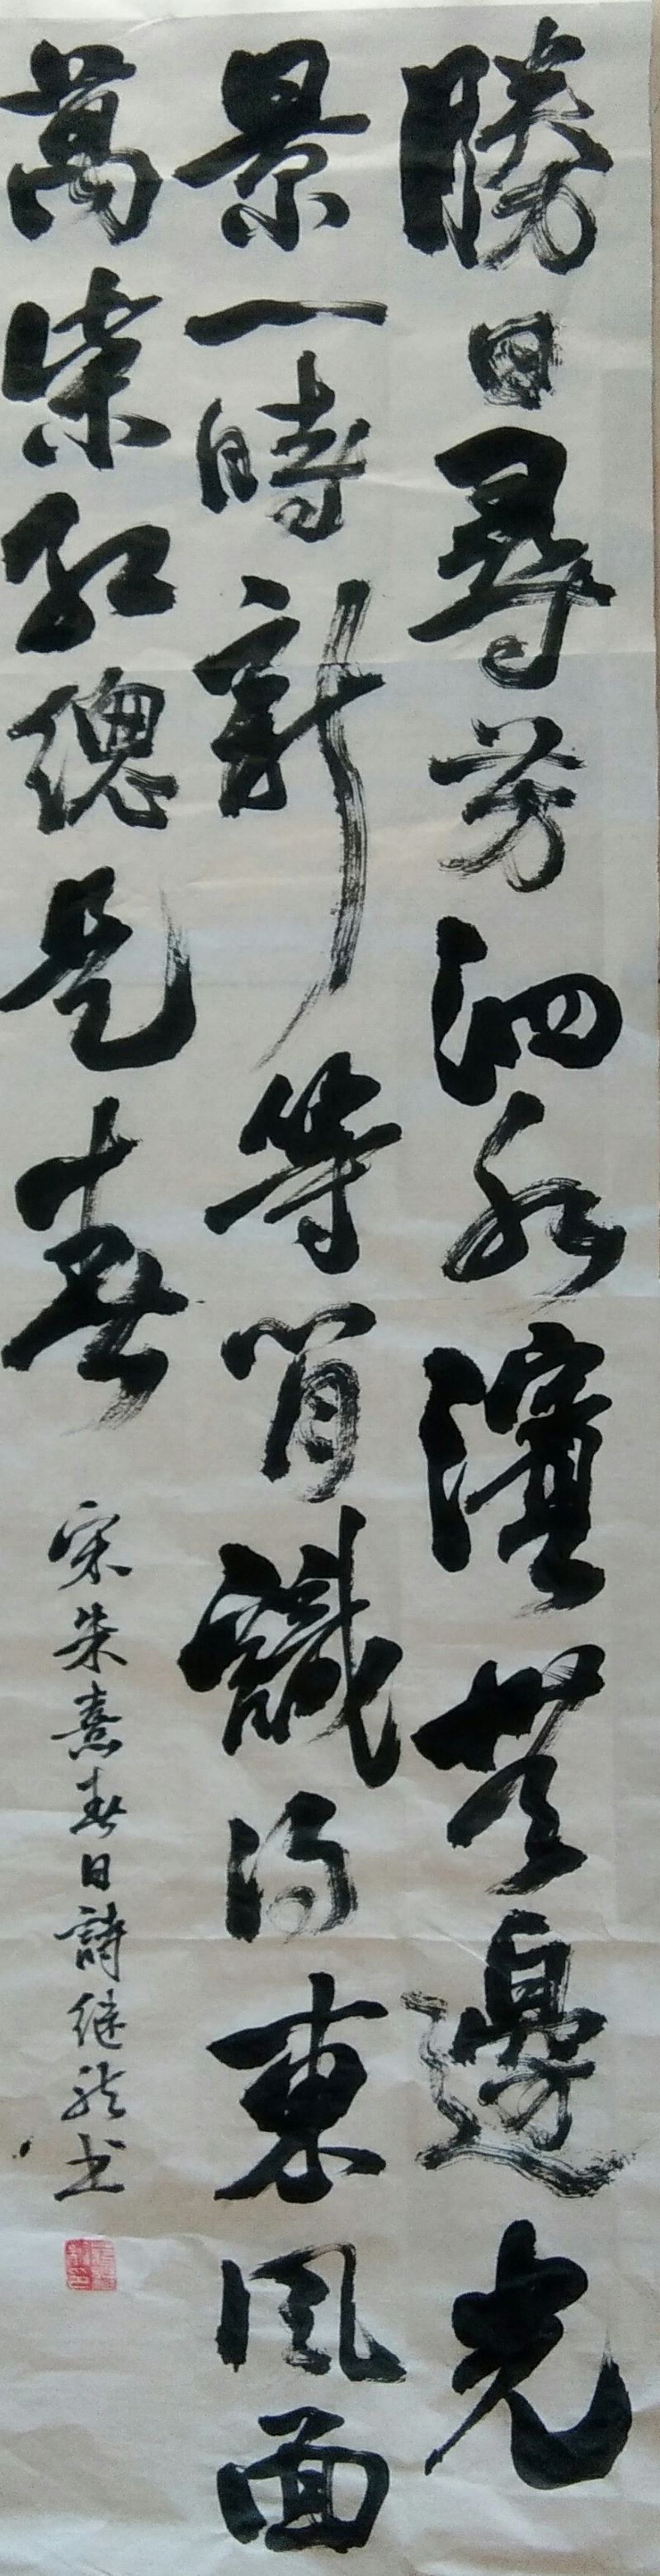 勝日尋芳泗水濱無邊光
景一時新等閒識得東風面
萬紫紅總是春
宋朱熹春日詩继龙书